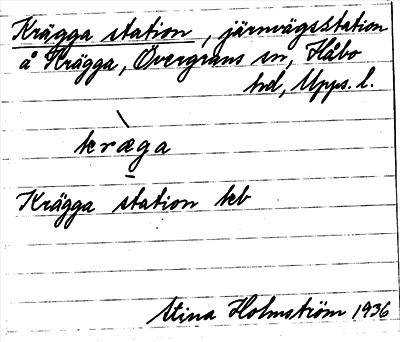 Krägga station, järnvägsstation
å Krägga, Övergrans sn, Håbo
hd, Upps. l.
kræ̀ga
Krägga station kcb
Stina Holmström 1936